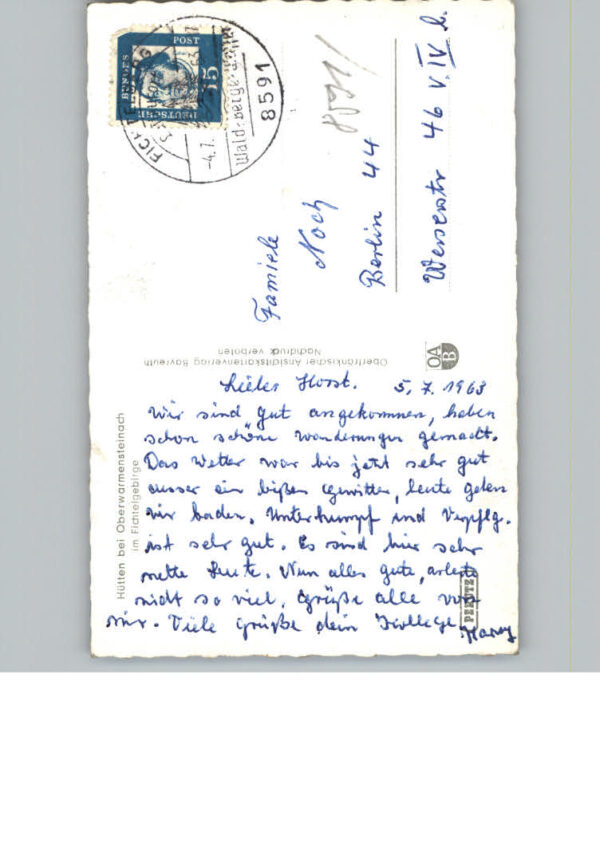 DEUTSCHE
BUNDES
POST
15
8591
Familie
Noch
Berlin 44
Weserstr 46 V. IV b.
Oberfränkischer Ansichtskartenverlag Bayreuth
Nachdruck verboten
OA
B
Hütten bei Oberwarmensteinach
im Fichtelgebirge
Lieber Horst. 5. 7. 1963
Wir sind gut angekommen, haben
schon schöne wanderungen gemacht.
Das Wetter war bis jetzt sehr gut
ausser ein bißen gewitter, heute gehen
wir baden. Unterkumpf und Verpflg.
ist sehr gut. Es sind hier sehr
nette Leute. Nun alles gute, arbeite
nicht so viel. grüße alle von
mir. Viele grüße dein Kollege
PERUTZ